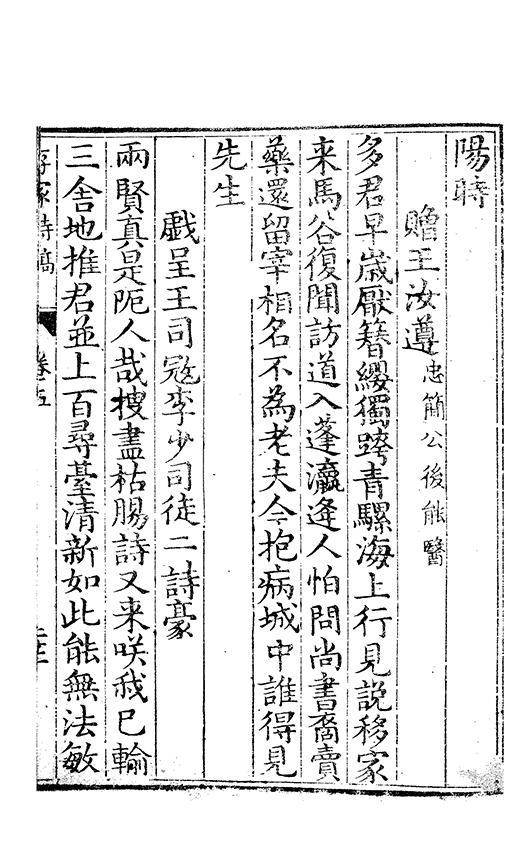 陽時
贈王汝遵忠簡公後能醫
多君早歲厭簪纓獨跨青騾海上行見説移家
来馬谷復聞訪道入蓬瀛逄人怕問尚書裔賣
藥還留宰相名不為老夫今抱病城中誰得見
先生
戯呈王司寇李少司徒二詩豪
兩賢真是阨人哉搜盡枯腸詩又来咲我已輸
三舍地推君並上百尋臺清新如此能無法敏
存家詩稿
卷五